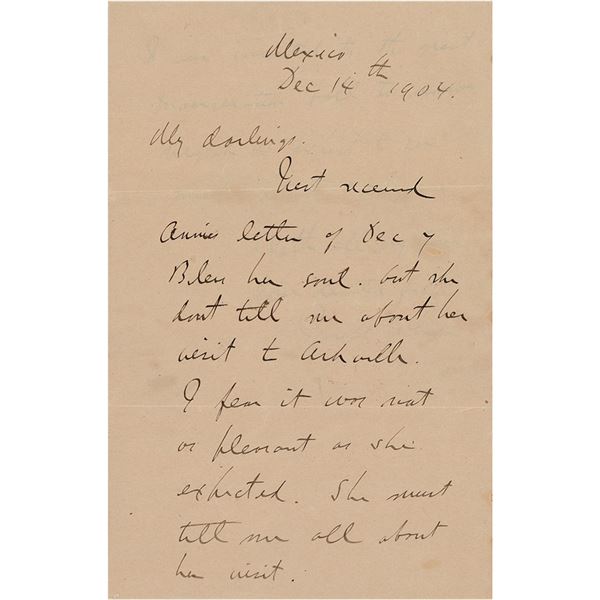 Mexico
Dec 14th 1904.
My darlings.
Just received
Annies letter of Dec 7
Bless her soul. but she
dont tell me about her
visit to Ashville.
I fear it was not
as pleasant as she
expected. She must
tell me all about
her visit.